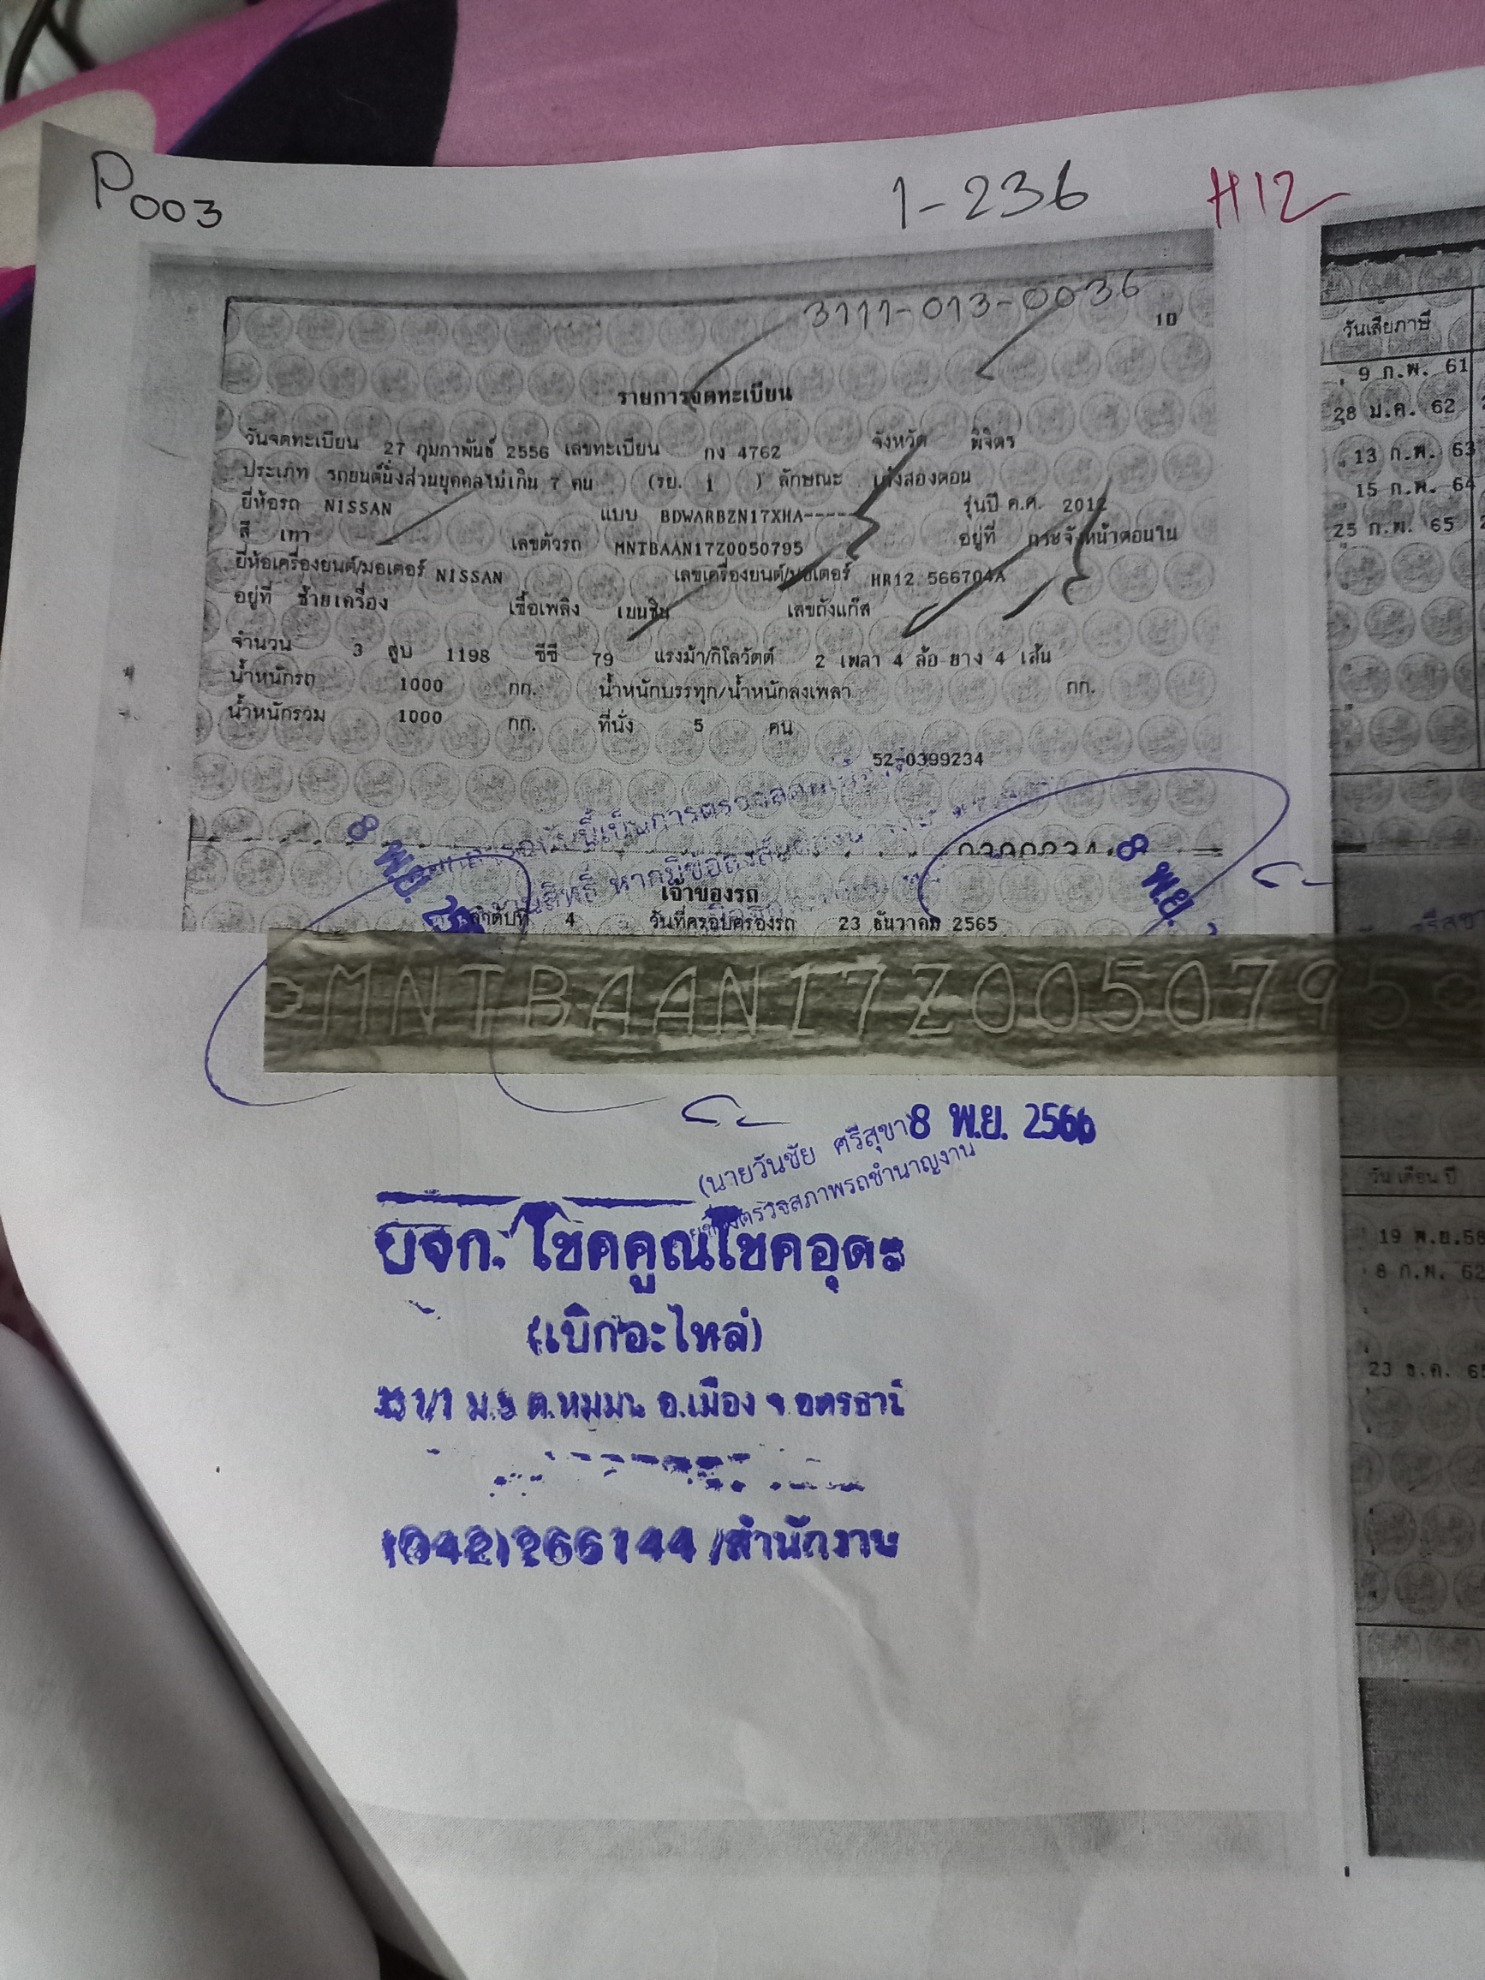 P003
1-236
H12
3111-013-0036
10
รายการจดทะเบียน
วันจดทะเบียน 27 กุมภาพันธ์ 2556 เลขทะเบียน กง 4762 จังหวัด พิจิตร
ประเภท รถยนต์นั่งส่วนบุคคลไม่เกิน 7 คน (รย. 1 ) ลักษณะ เก๋งสองตอน
ยี่ห้อรถ NISSAN แบบ BDWARBZN17XHA----- รุ่นปี ค.ศ. 2012
สี เทา เลขตัวรถ MNTBAAN17Z0050795 อยู่ที่ กระจังหน้าตอนใน
ยี่ห้อเครื่องยนต์/มอเตอร์ NISSAN เลขเครื่องยนต์/มอเตอร์ HR12 566704A
อยู่ที่ ซ้ายเครื่อง เชื้อเพลิง เบนซิน เลขถังแก๊ส
จำนวน 3 สูบ 1198 ซีซี 79 แรงม้า/กิโลวัตต์ 2 เพลา 4 ล้อ ยาง 4 เส้น
น้ำหนักรถ 1000 กก. น้ำหนักบรรทุก/น้ำหนักลงเพลา กก.
น้ำหนักรวม 1000 กก. ที่นั่ง 5 คน
52-0399234
8 พ.ย.
8 พ.ย.
เจ้าของรถ
ลำดับที่ 4 วันที่ครอบครองรถ 23 ธันวาคม 2565
MNTBAAN17Z0050795
8 พ.ย. 2566
(นายวันชัย ศรีสุขา)
ตรวจสภาพรถชำนาญงาน
หจก. โชคคูณโชคอุดร
(เบิกอะไหล่)
ต.หมูม่น อ.เมือง จ.อุดรธานี
(042)266144/สำนักงาน
วันเสียภาษี
9 ก.พ. 61
28 ม.ค. 62
13 ก.พ. 63
15 ก.พ. 64
25 ก.พ. 65
วัน เดือน ปี
19 พ.ย.58
8 ก.พ. 62
23 ธ.ค. 65